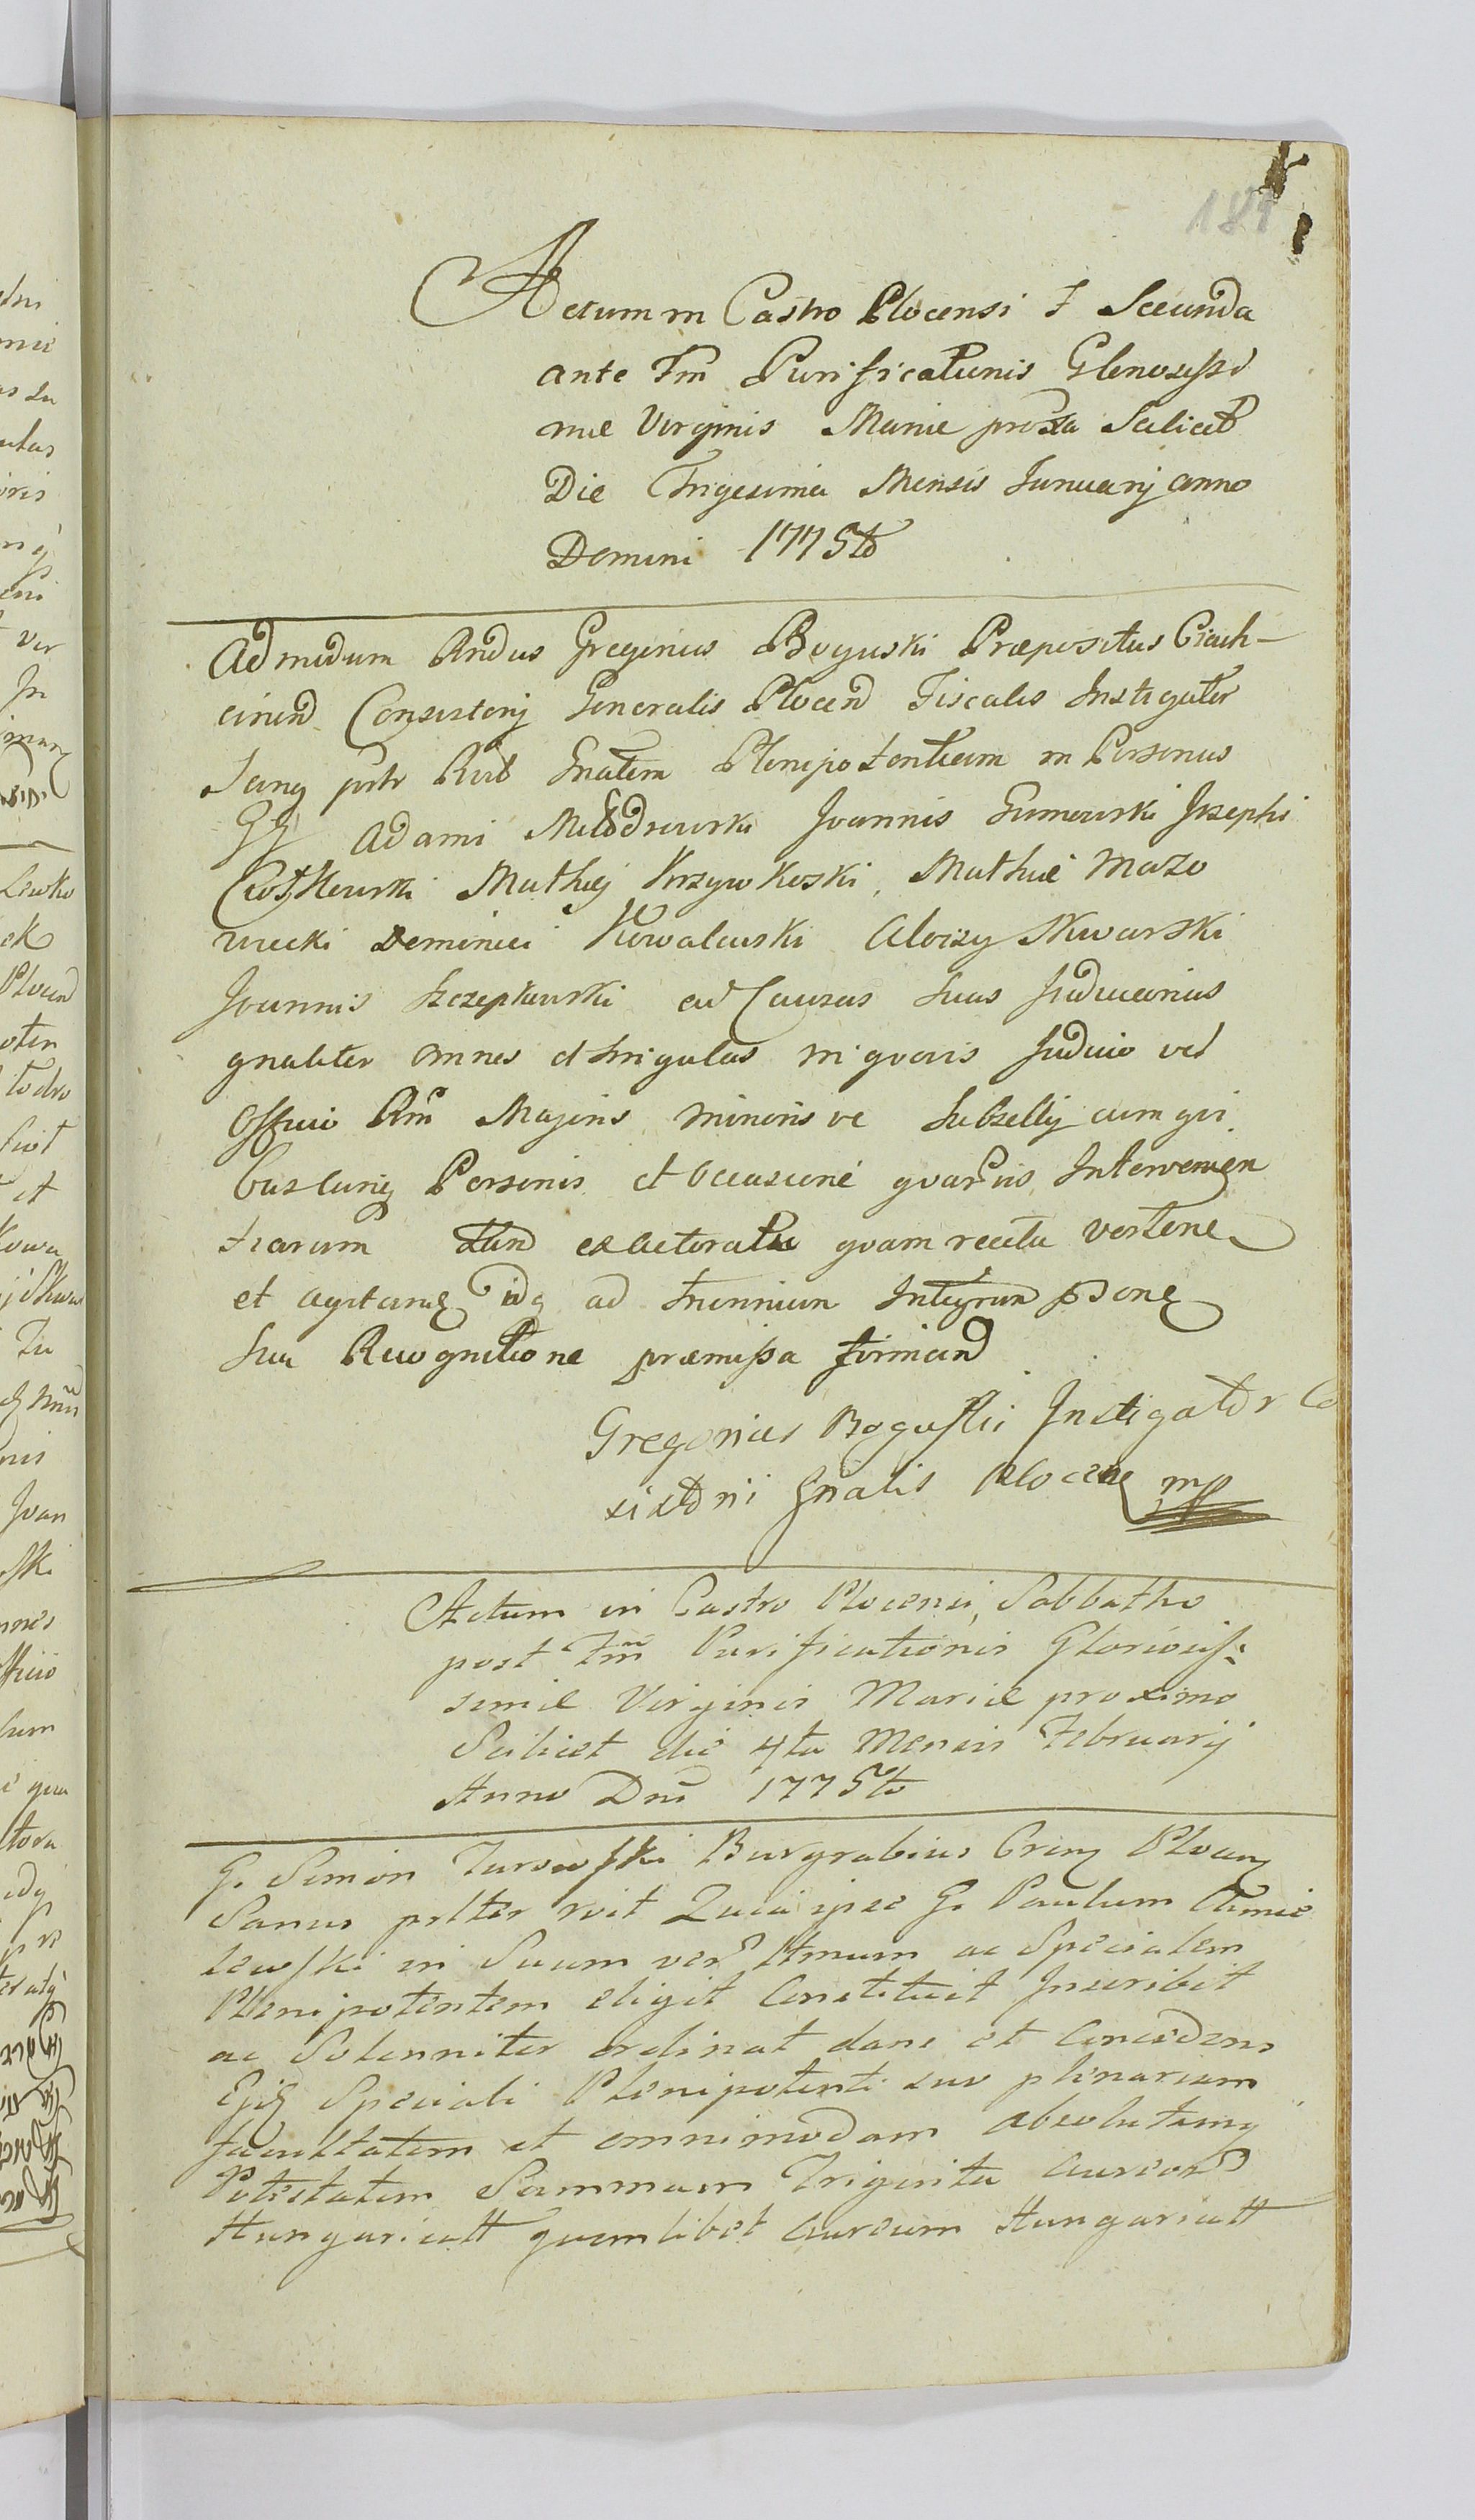 181
Actum in Castro Plocensi F Secunda
ante Fm Purificationis Gloriosissi
mae Virginis Mariae proxa Scilicet
Die Trigesima Mensis Januarij anno
Domini 1775to
Admodum Rndus Gregorius Boguski Præpositus Ciach-
cinen Consistorij Generalis Plocen Fiscalis Instigator
Sanq pntr Rvit Gnalem Plenipotentiam in Personas
GG Adami Młodzowski Joannis Gumowski Josephi
Ciotkowski Mathiej Krzywkoski, Mathiæ Mazo
wiecki Dominici Kowalewski Aloizy Skwarski
Joannis Szczepkowski ad Causas Suas Judiciarias
gnaliter omnes et Singulas in qvovis Judicio vel
Officio Rni Majoris minoris ve Subsellij cum qvi
buscunq Personis et Occasione qvarvis Intervenien
tiarum tam ex actoratu qvam reatu verten
et agitan idq ad triennium Integrum psone
Sua Recognitione præmissa firmand
Gregorius Boguski Instigator Co
sistorii Gnalis Plocen mp
Actum in Castro Plocensi, Sabbatho
post Fm Purificationis Gloriosis:
simæ Virginis Mariæ proximo
Scilicet die 4ta Mensis Februarij
Anno Dni 1775to
G. Simon Turowski Burgrabius Cren Plocen
Sanus pnlter rvit Quia ipse G. Paulum Chmie
lewski in Suum ver Ltmum ac Specialem
Plenipotentem eligit Constituit Inscribit
ac Solenniter ordinat dans et Concedens
Ejq Speciali Plenipotenti suo plenariam
facultatem et omnimodam absolutamq
Potestatem Summam Triginta aureor
Hungaricall quemlibet aureum Hungaricall